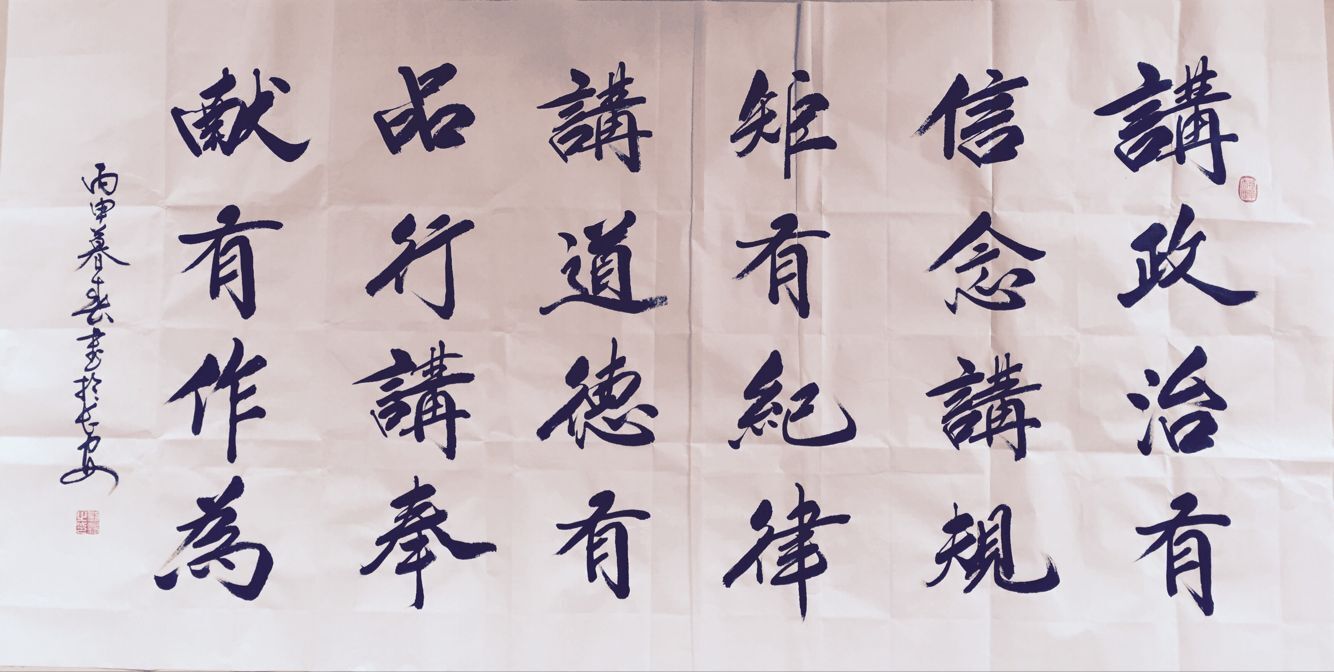 講政治有
信念講規
矩有紀律
講道德有
品行講奉
獻有作為
丙申暮春書於长安